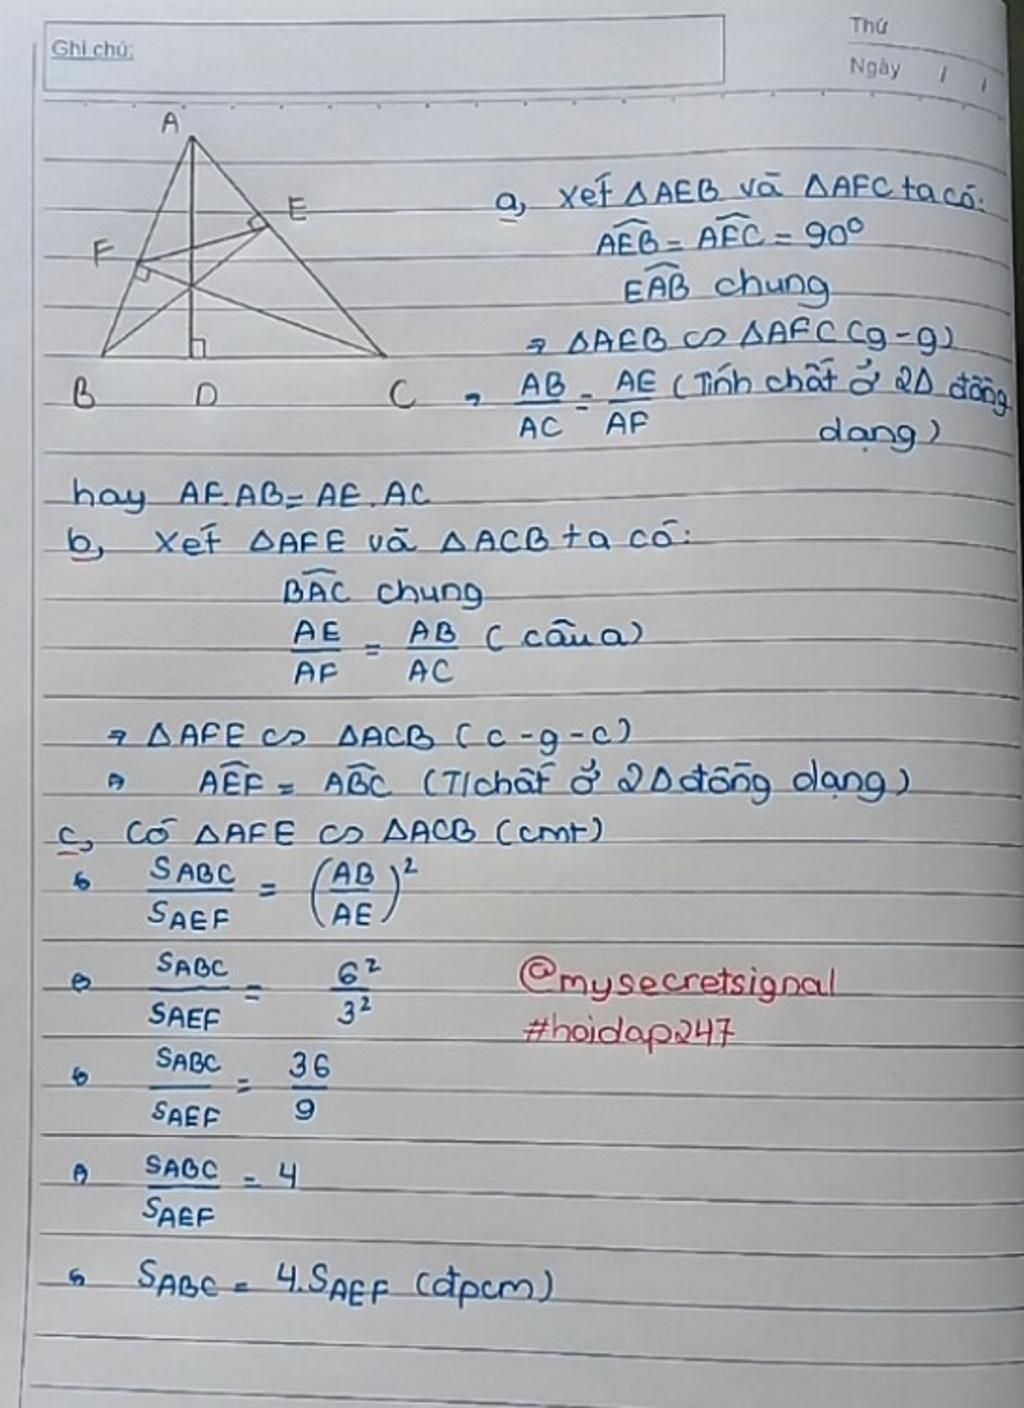 Ghi chú:
Thứ
Ngày / /
A
E
F
B D C
a, Xét ΔAEB và ΔAFC ta có:
AEB = AFC = 90°
EAB chung
⇒ ΔAEB ∽ ΔAFC (g-g)
⇒ AB/AC = AE/AF (Tính chất ở 2Δ đồng
dạng)
hay AF.AB = AE.AC
b, Xét ΔAFE và ΔACB ta có:
BAC chung
AE/AF = AB/AC (câu a)
⇒ ΔAFE ∽ ΔACB (c-g-c)
⇒ AEF = ABC (T/chất ở 2Δ đồng dạng)
c, Có ΔAFE ∽ ΔACB (cmt)
⇒ SABC/SAEF = (AB/AE)²
⇒ SABC/SAEF = 6²/3²
@mysecretsignal
#hoidap247
⇒ SABC/SAEF = 36/9
⇒ SABC/SAEF = 4
⇒ SABC = 4.SAEF (đpcm)